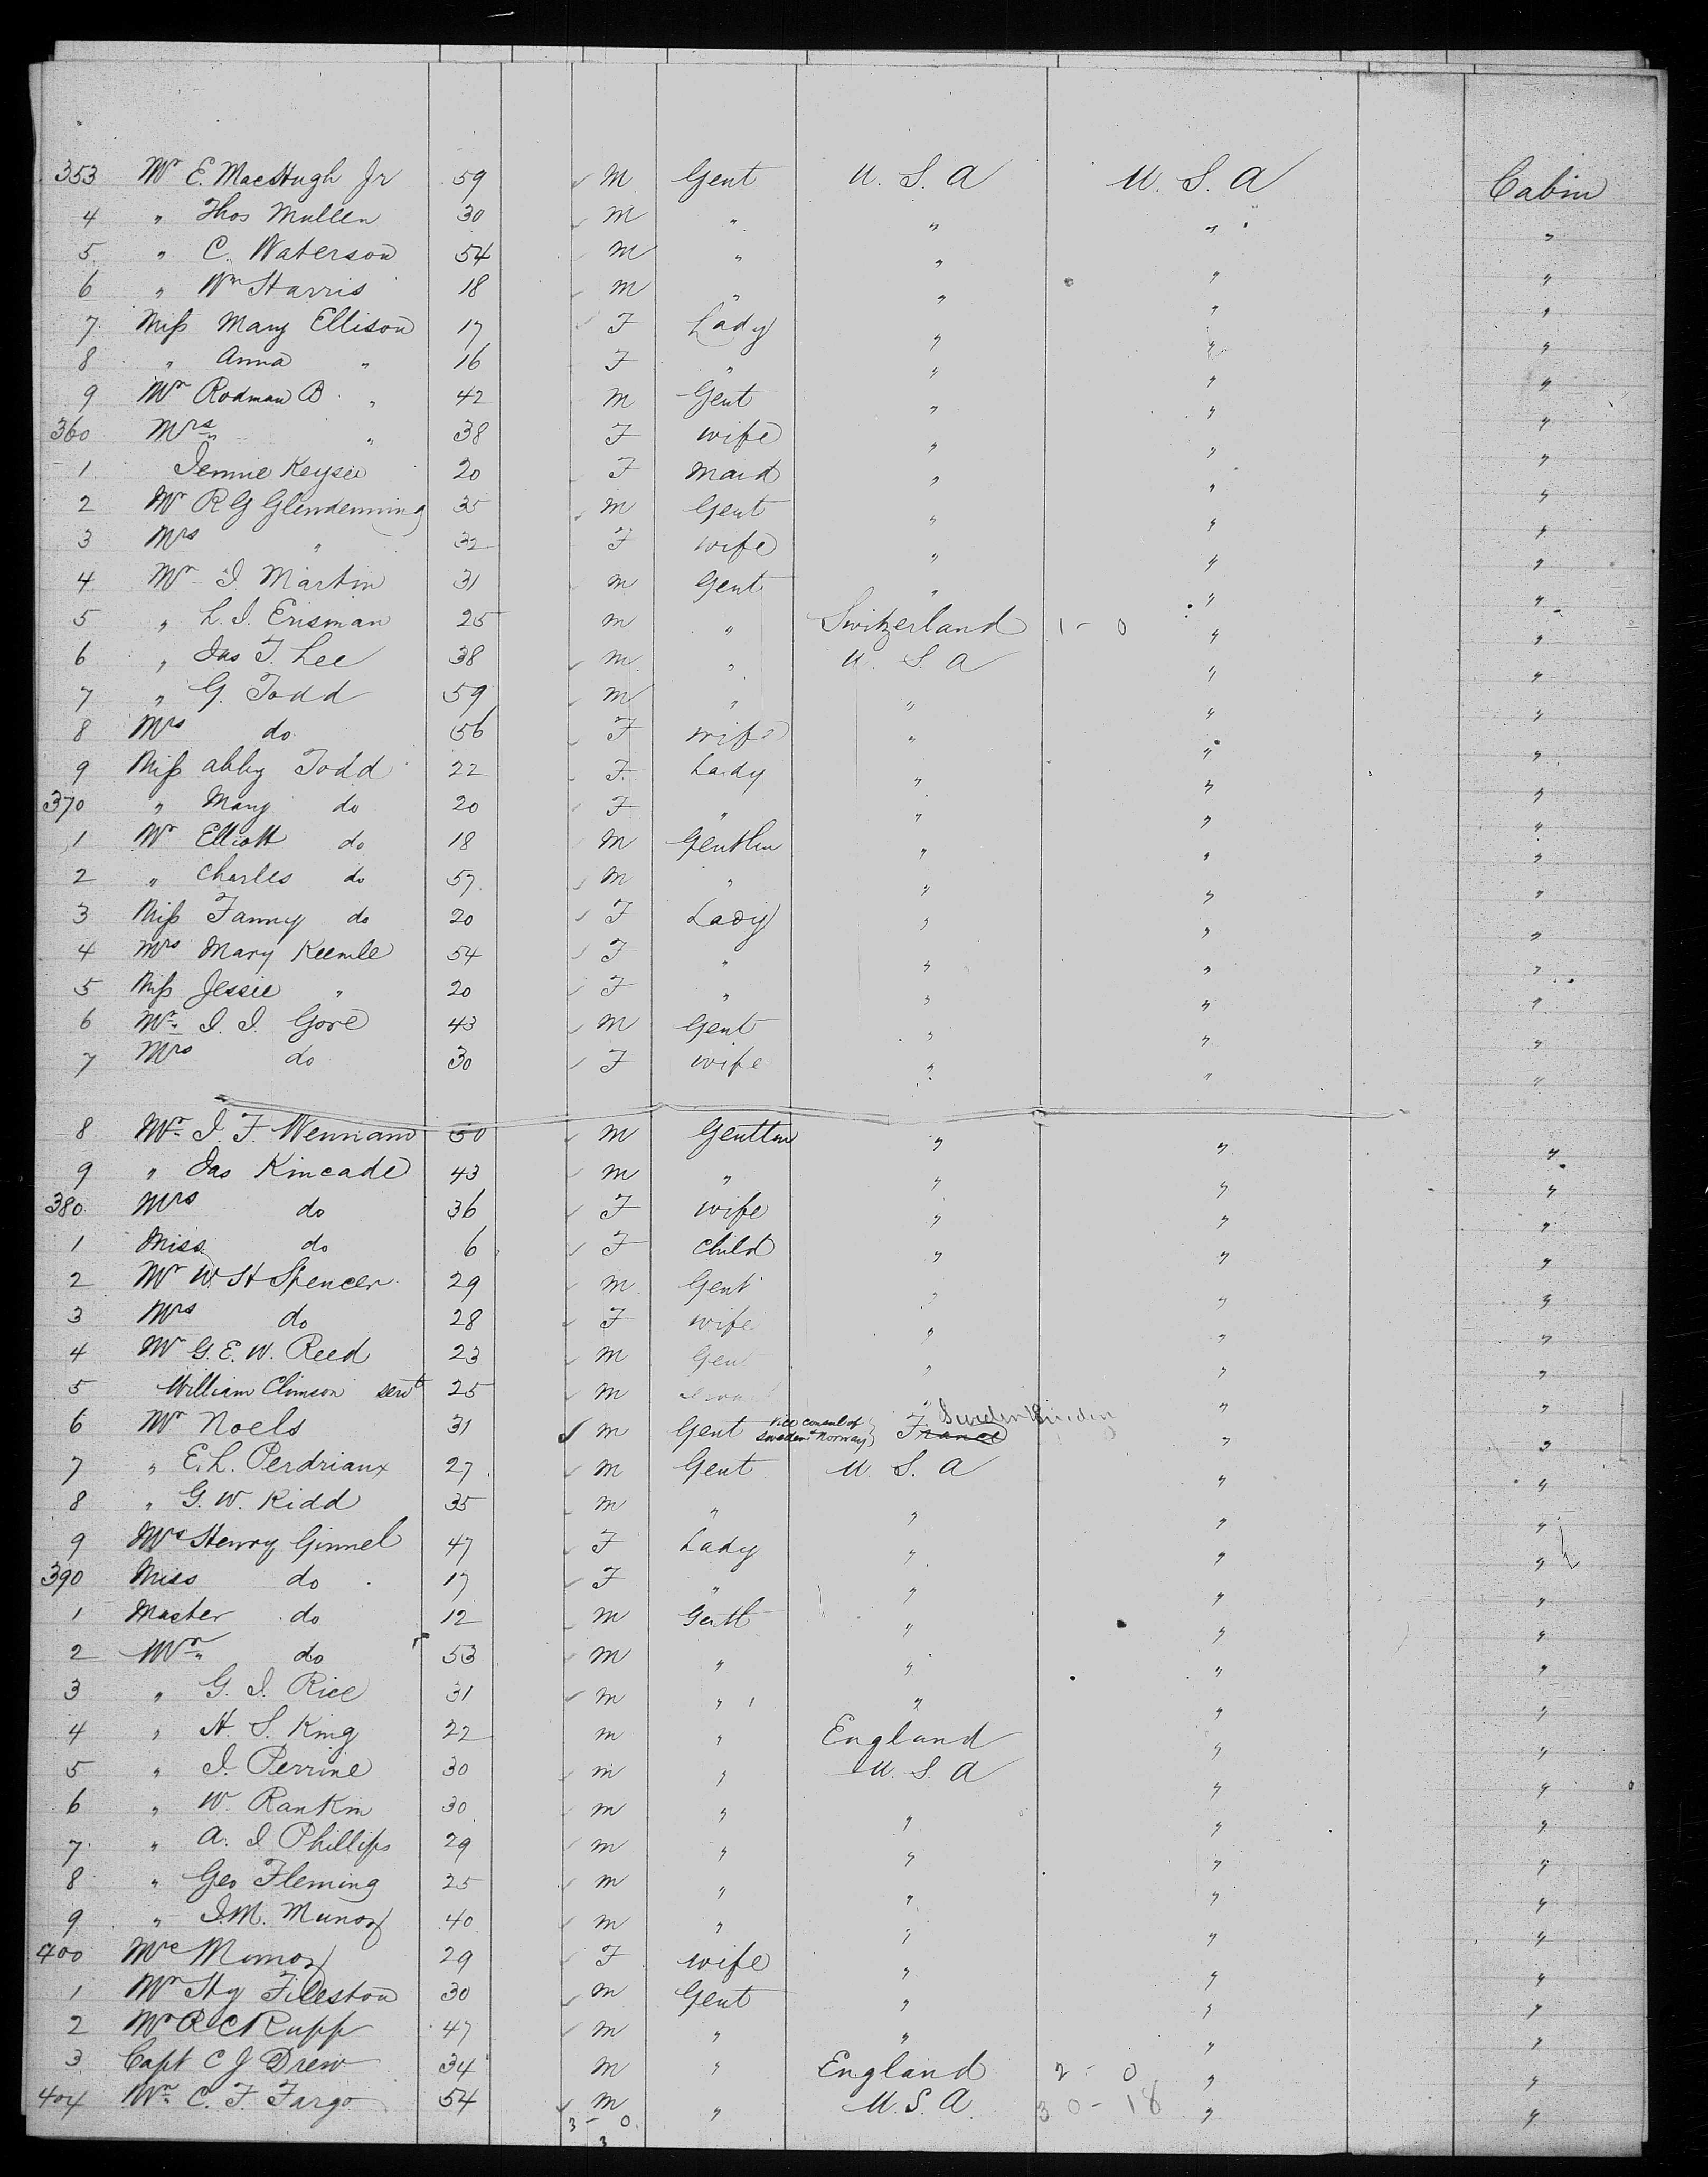 353 Mr E. MacHugh Jr 59 ✓ M Gent U. S. A U. S. A Cabin
4 " Thos Mullen 30 ✓ M " " " "
5 " C. Waterson 54 M " " " "
6 " Wm Harris 18 M " " " "
7 Miss Mary Ellison 17 F Lady " " "
8 " Anna " 16 F " " " "
9 Mr Rodman B. " 42 M Gent " " "
360 Mrs " 38 F wife " " "
1 Jennie Keyser 20 F Maid " " "
2 Mr R G Glendenning 35 M Gent " " "
3 Mrs " 32 F wife " " "
4 Mr J. Martin 31 M Gent " " "
5 " L. J. Erisman 25 M " Switzerland 1 - 0 " "
6 " Jas T. Lee 38 M " U. S. A " "
7 " G. Todd 59 M " " " "
8 Mrs do 56 F wife " " "
9 Miss Abby Todd 22 F Lady " " "
370 " Mary do 20 F " " " "
1 Mr Elliott do 18 M Gentlm " " "
2 " Charles do 57 M " " " "
3 Miss Fanny do 20 F Lady " " "
4 Mrs Mary Keemle 54 F " " " "
5 Miss Jessie " 20 F " " " "
6 Mr. J. J. Gore 43 M Gent " " "
7 Mrs do 30 F wife " " "
8 Mr. J. F. 50 M Gentlm " " "
9 " Jas Kincade 43 M " " " "
380 Mrs do 36 F wife " " "
1 Miss do 6 F child " " "
2 Mr W. H Spencer 29 M Gent " " "
3 Mrs do 28 F wife " " "
4 Mr G. E. W. Reed 23 M Gent " " "
5 William Climson servt 25 M " " "
6 Mr Noels 31 ✓ M Gent Vice Consul of Sweden & Norway France Sweden " "
7 " E. L. Perdriaux 27 M Gent U. S. A " "
8 " G. W. Kidd 35 M " " " "
9 Mrs Henry Ginnel 47 F Lady " " "
390 Miss do 17 F " " " "
1 Master do 12 M Gentl " " "
2 Mr. do 53 M " " " "
3 " G. J. Rice 31 M " " " "
4 " H. S. King 22 M " England " "
5 " J. Perrine 30 M " U. S. A " "
6 " W. Rankin 30 M " " " "
7 " A. J Phillips 29 M " " " "
8 " Geo Fleming 25 M " " " "
9 " J. M. Munoz 40 M " " " "
400 Mrs Munoz 29 F wife " " "
1 Mr Hy Fileston 30 M Gent " " "
2 Mr R C Rupp 47 M " " " "
3 Capt C J Drew 34 M " England 2 - 0 " "
404 Mr. C. F. Fargo 54 ✓ M " U. S. A. 30 - 18 " "
3 - 0
3